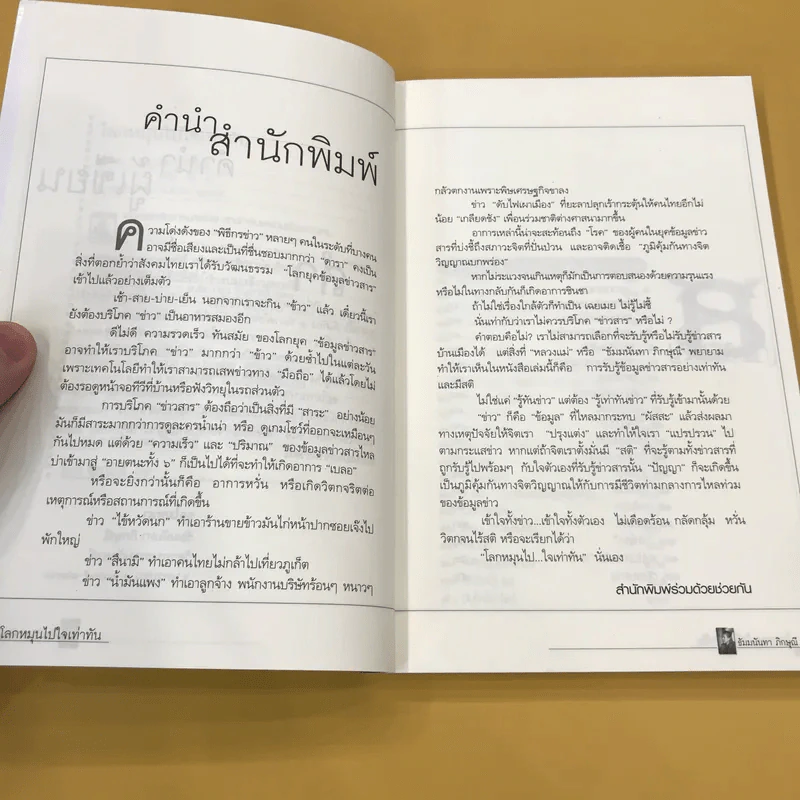 คำนำ
สำนักพิมพ์
ความโด่งดังของ "พิธีกรข่าว" หลายๆ คนในระดับที่บางคน
อาจมีชื่อเสียงและเป็นที่ชื่นชอบมากกว่า "ดารา" คงเป็น
สิ่งที่ตอกย้ำว่าสังคมไทยเราได้รับวัฒนธรรม "โลกยุคข้อมูลข่าวสาร"
เข้าไปแล้วอย่างเต็มตัว
เช้า-สาย-บ่าย-เย็น นอกจากเราจะกิน "ข้าว" แล้ว เดี๋ยวนี้เรา
ยังต้องบริโภค "ข่าว" เป็นอาหารสมองอีก
ดีไม่ดี ความรวดเร็ว ทันสมัย ของโลกยุค "ข้อมูลข่าวสาร"
อาจทำให้เราบริโภค "ข่าว" มากกว่า "ข้าว" ด้วยซ้ำไปในแต่ละวัน
เพราะเทคโนโลยีทำให้เราสามารถเสพข่าวทาง "มือถือ" ได้แล้วโดยไม่
ต้องรอดูหน้าจอทีวีที่บ้านหรือฟังวิทยุในรถส่วนตัว
การบริโภค "ข่าวสาร" ต้องถือว่าเป็นสิ่งที่มี "สาระ" อย่างน้อย
มันก็มีสาระมากกว่าการดูละครน้ำเน่า หรือ ดูเกมโชว์ที่ออกจะเหมือนๆ
กันไปหมด แต่ด้วย "ความเร็ว" และ "ปริมาณ" ของข้อมูลข่าวสารไหล
บ่าเข้ามาสู่ "อายตนะทั้ง ๖" ก็เป็นไปได้ที่จะทำให้เกิดอาการ "เบลอ"
หรือจะยิ่งกว่านั้นก็คือ อาการหวั่น หรือเกิดวิตกจริตต่อ
เหตุการณ์หรือสถานการณ์ที่เกิดขึ้น
ข่าว "ไข้หวัดนก" ทำเอาร้านขายข้าวมันไก่หน้าปากซอยเจ๊งไป
พักใหญ่
ข่าว "สึนามิ" ทำเอาคนไทยไม่กล้าไปเที่ยวภูเก็ต
ข่าว "น้ำมันแพง" ทำเอาลูกจ้าง พนักงานบริษัทร้อนๆ หนาวๆ
โลกหมุนไปใจเท่าทัน
กลัวตกงานเพราะพิษเศรษฐกิจขาลง
ข่าว "ดับไฟเผาเมือง" ที่ยะลาปลุกเร้ากระตุ้นให้คนไทยอีกไม่
น้อย "เกลียดชัง" เพื่อนร่วมชาติต่างศาสนามากขึ้น
อาการเหล่านี้น่าจะสะท้อนถึง "โรค" ของผู้คนในยุคข้อมูลข่าว
สารที่บ่งชี้ถึงสภาวะจิตที่ปั่นป่วน และอาจติดเชื้อ "ภูมิคุ้มกันทางจิต
วิญญาณบกพร่อง"
หากไม่ระแวงจนเกินเหตุก็มักเป็นการตอบสนองด้วยความรุนแรง
หรือไม่ในทางกลับกันก็เกิดอาการชินชา
ถ้าไม่ใช่เรื่องใกล้ตัวก็ทำเป็น เฉยเมย ไม่รู้ไม่ชี้
นั่นเท่ากับว่าเราไม่ควรบริโภค "ข่าวสาร" หรือไม่ ?
คำตอบคือไม่? เราไม่สามารถเลือกที่จะรับรู้หรือไม่รับรู้ข่าวสาร
บ้านเมืองได้ แต่สิ่งที่ "หลวงแม่" หรือ "ธัมมนันทา ภิกษุณี" พยายาม
ทำให้เราเห็นในหนังสือเล่มนี้ก็คือ การรับรู้ข้อมูลข่าวสารอย่างเท่าทัน
และมีสติ
ไม่ใช่แค่ "รู้ทันข่าว" แต่ต้อง "รู้เท่าทันข่าว" ที่รับรู้เข้ามานั้นด้วย
"ข่าว" ก็คือ "ข้อมูล" ที่ไหลมากระทบ "ผัสสะ" แล้วส่งผลมา
ทางเหตุปัจจัยให้จิตเรา "ปรุงแต่ง" และทำให้ใจเรา "แปรปรวน" ไป
ตามกระแสข่าว หากแต่ถ้าจิตเราตั้งมั่นมี "สติ" ที่จะรู้ตามทั้งข่าวสารที่
ถูกรับรู้ไปพร้อมๆ กับใจตัวเองที่รับรู้ข่าวสารนั้น "ปัญญา" ก็จะเกิดขึ้น
เป็นภูมิคุ้มกันทางจิตวิญญาณให้กับการมีชีวิตท่ามกลางการไหลท่วม
ของข้อมูลข่าว
เข้าใจทั้งข่าว...เข้าใจทั้งตัวเอง ไม่เดือดร้อน กลัดกลุ้ม หวั่น
วิตกจนไร้สติ หรือจะเรียกได้ว่า
"โลกหมุนไป...ใจเท่าทัน" นั่นเอง
สำนักพิมพ์ร่วมด้วยช่วยกัน
ธัมมนันทา ภิกษุณี